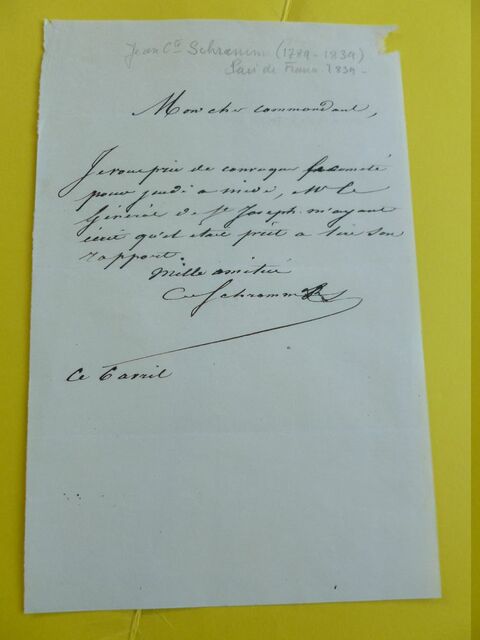 Jean Cte Schramm (1789-1839)
Pair de France 1839-
Mon cher commandant,
Je vous prie de convoquer le comité
pour jeudi a midi, Mr le
Général de St Joseph m'ayant
écrit qu'il étoit prêt a lire son
rapport.
Mille amitiés
Cte Schramm
Ce 6 avril